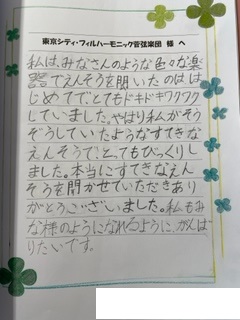 東京シティ・フィルハーモニック管弦楽団 様 へ
私は、みなさんのような色々な楽
器でえんそうを聞いたのはは
じめてで、とてもドキドキワクワク
していました。やはり私がそう
ぞうしていたようなすてきな
えんそうで、とってもびっくりし
ました。本当にすてきなえん
そうを聞かせていただきあり
がとうございました。私もみ
な様のようになれるように、がんば
りたいです。